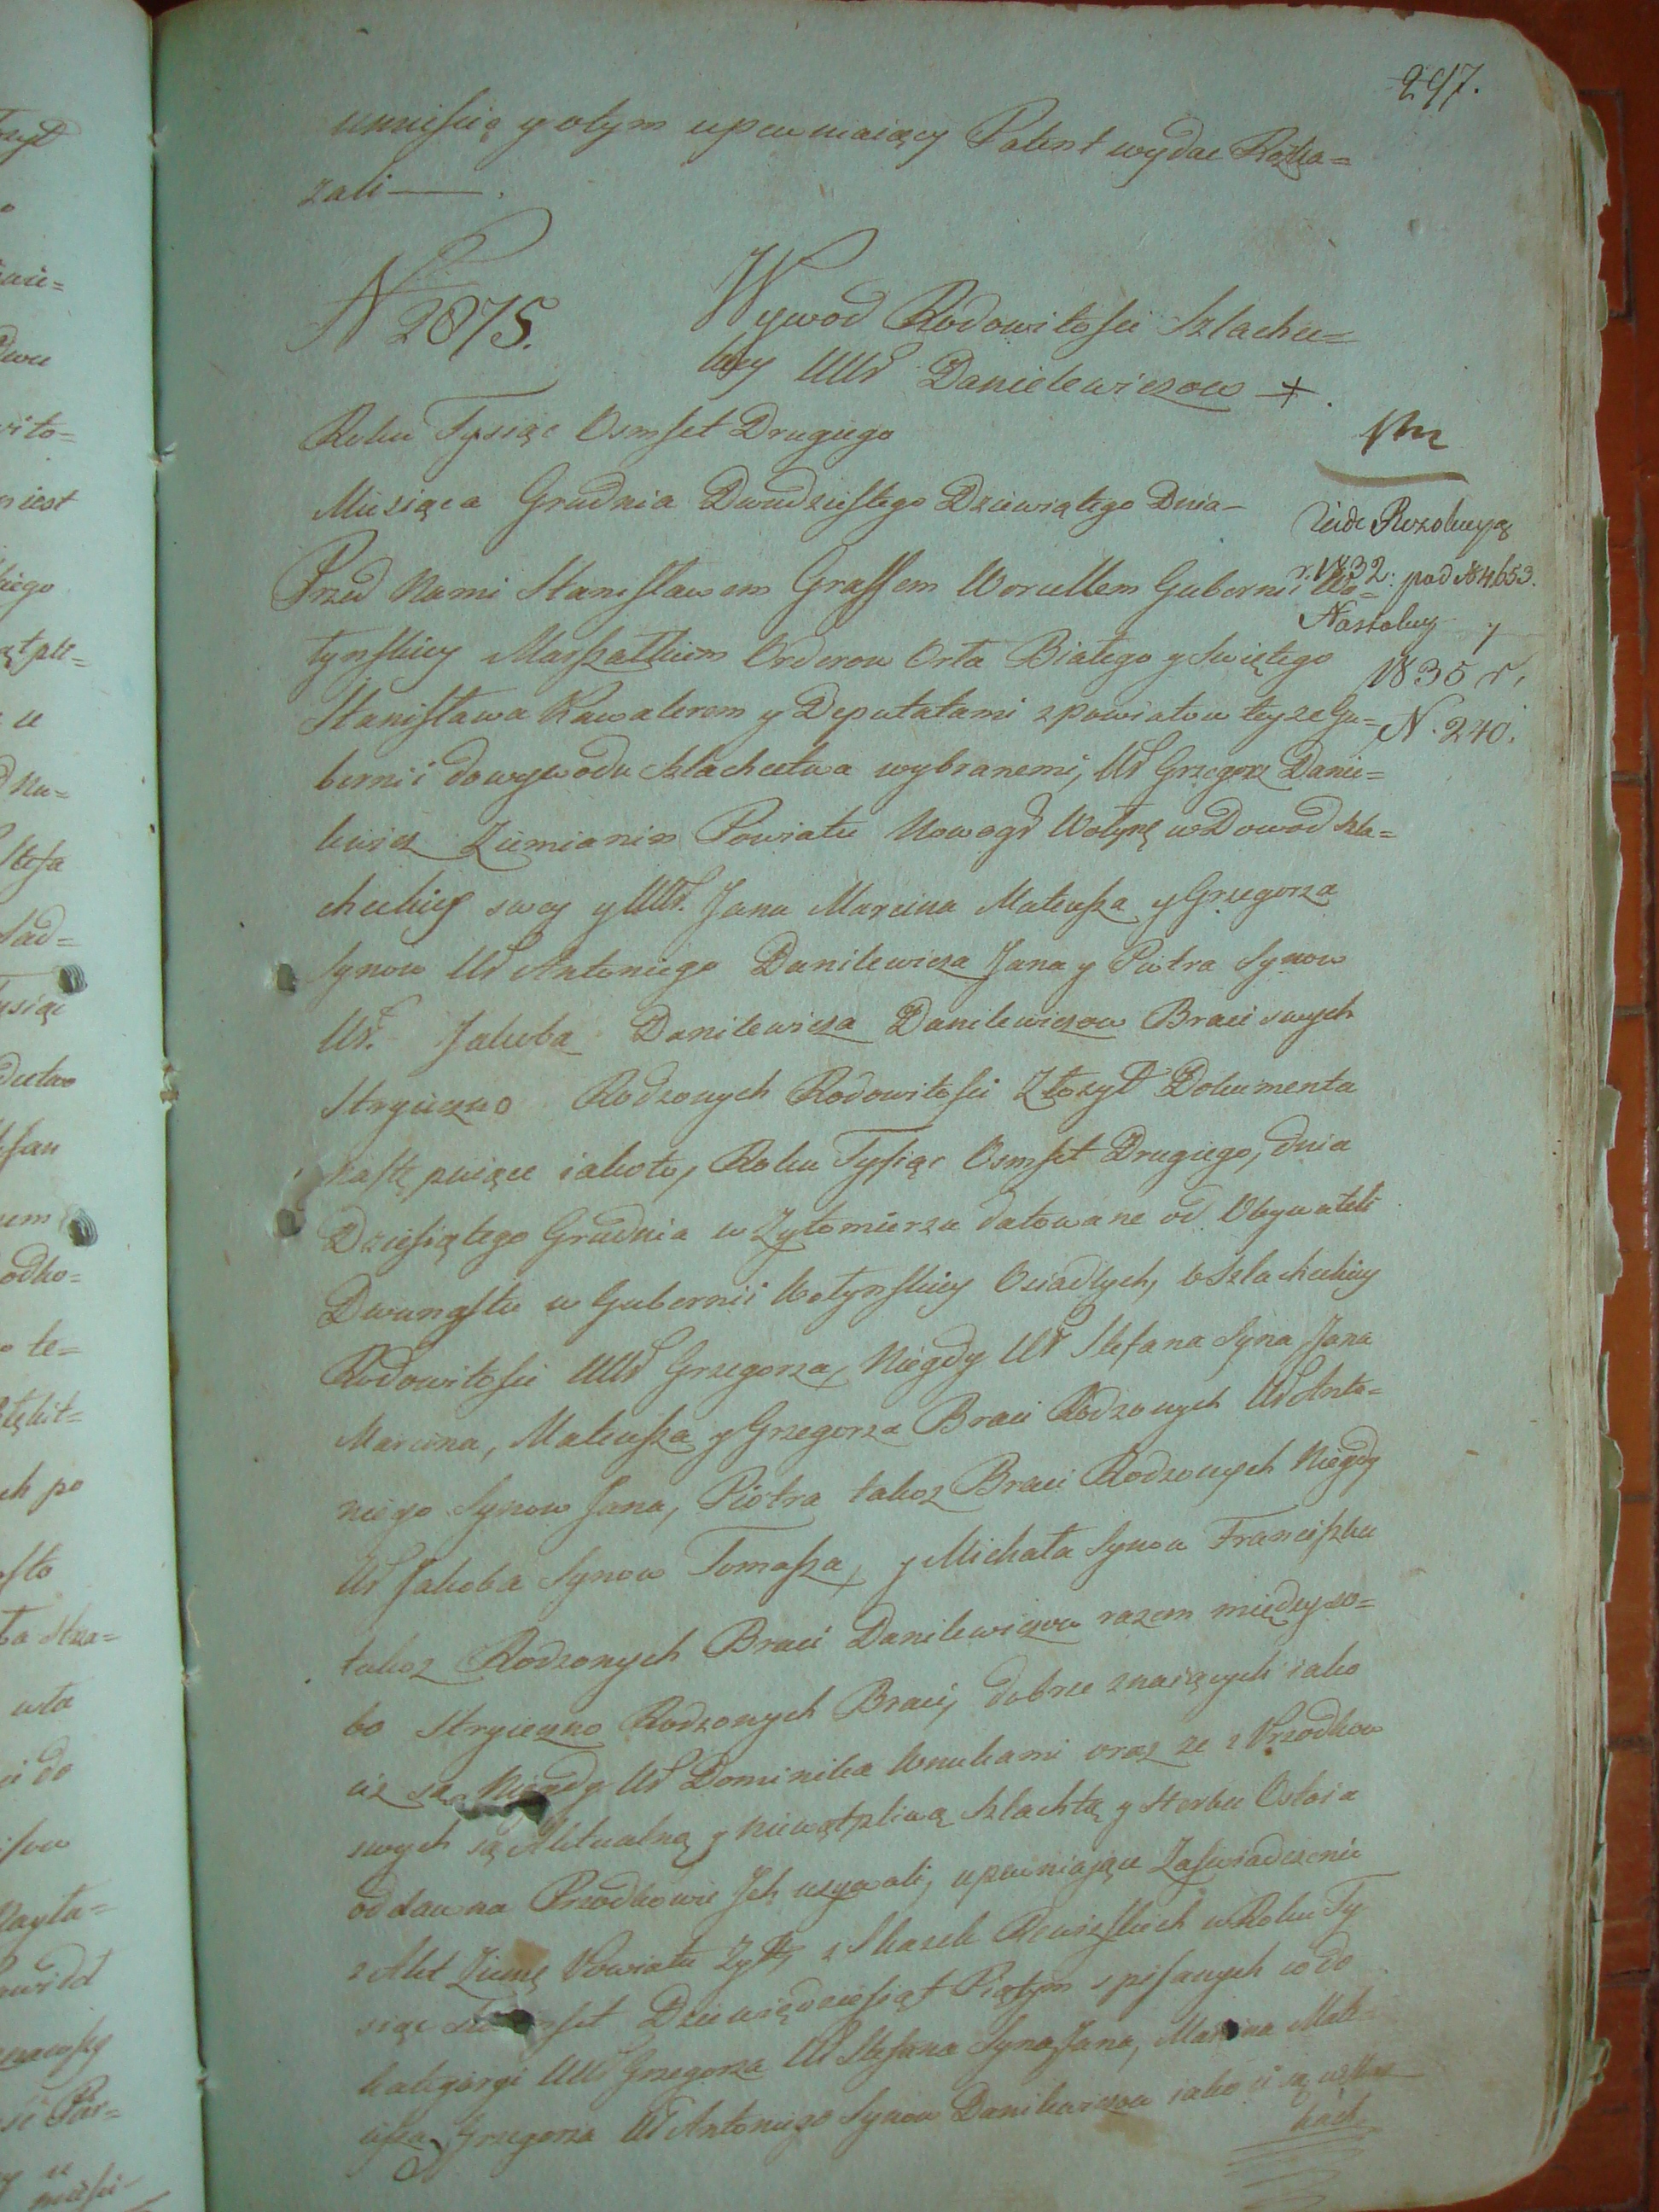 297.
umieścić y o tym upewniaiący Patent wydać Rozka=
zali —.
N 2875.
Wywod Rodowitości Szlachec=
kiey UUr Danielewiczow +.
Roku Tysiąc Osmset Drugiego
Miesiąca Grudnia Dwudziestego Dziewiątego Dnia —
Vide Rezolucyą
r. 1832: pod N 4653.
1835 r.
N. 240.
Przed Nami Stanisławem Grafem Worcellem Gubernii Wo=
łynskiey Marszałkiem Orderow Orła Białego y Swiętego
Stanisława Kawalerem y Deputatami z powiatow teyże Gu=
bernii do wywodu szlachectwa wybranemi, Ur Grzegorz Danie=
lewicz Ziemianin Powiatu Nowogr Wołyń w Dowod szla=
checkiey swey y UUr. Jana Marcina Mateusza y Grzegorza
Synow Ur Antoniego Danilewicza Jana y Piotra Synow
Ur. Jakuba Danilewicza Danilewiczow Braci swych
Stryieczno Rodzonych Rodowitości Złożył Dokumenta
następuiące iakoto, Roku Tysiąc Osmset Drugiego, dnia
Dziesiątego Grudnia w Zytomierzu datowane od Obywateli
Dwunastu w Gubernii Wołynskiey Osiadłych, o Szlacheckiey
Rodowitości UUr Grzegorza, Niegdy Ur Stefana Syna Jana
Marcina, Mateusza y Grzegorza Braci Rodzonych Ur Anto=
niego Synow Jana, Piotra takoż Braci Rodzonych Niegdy
Ur Jakoba Synow Tomasza, y Michała Synow Franciszka
takoż Rodzonych Braci Danilewiczow razem między so=
bo Stryieczno Rodzonych Braci, dobrze znaiących iako
iż są Niegdy Ur Dominika Wnukami oraz ze z Przodkow
swych są Aktualną y niewątpliwą szlachtą y Herbu Ostoia
oddawna Przodkowie Ich używali, upewniaiące Zaświadczenie
z Akt Ziemę Powiatu Zytt, z Skazek Rewizskich w Roku Ty
siąc Dziewięćdziesiąt Piątym spisanych co do
kategorgi UUr Grzegorza Ur Stefana Syna Jana, Marcina Mate=
usza Grzegorza Ur Antoniego Synow Danilewiczow iako ii są
kach